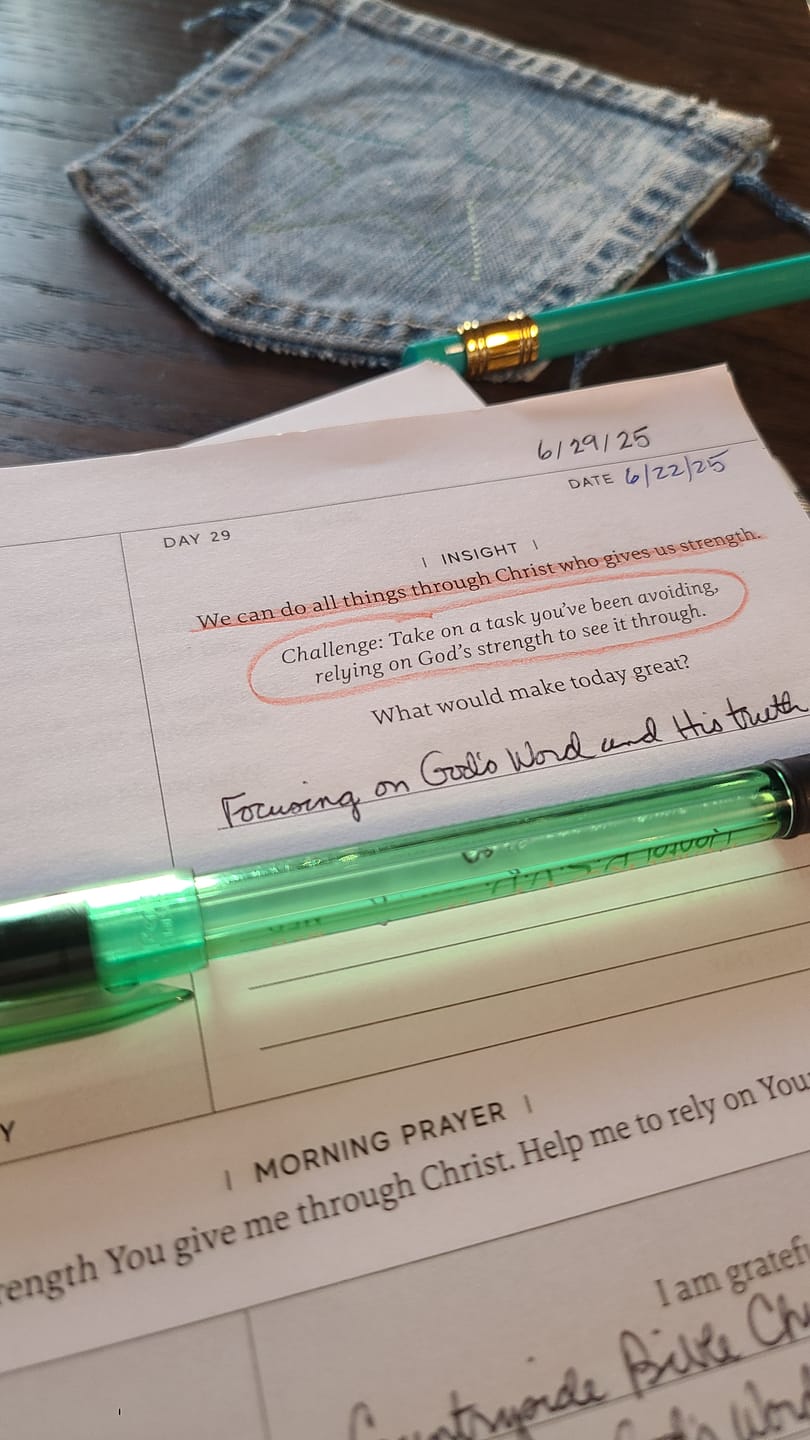 6/29/25
DATE 6/22/25
DAY 29
| INSIGHT |
We can do all things through Christ who gives us strength.
Challenge: Take on a task you've been avoiding,
relying on God's strength to see it through.
What would make today great?
Focusing on God's Word and His truth
Y
| MORNING PRAYER |
rength You give me through Christ. Help me to rely on You
I am gratef
Countryside Bible Ch
God's Word